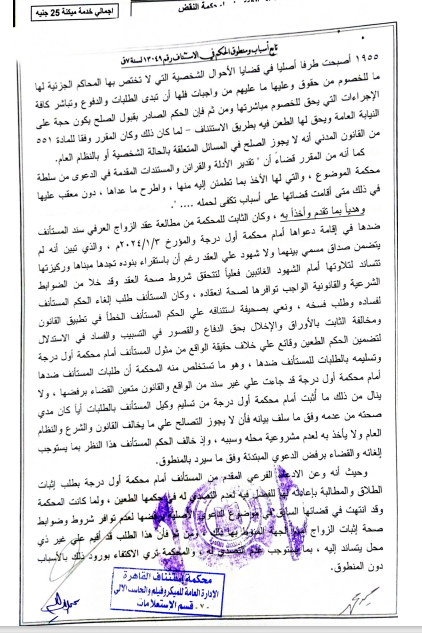 اجمالي خدمة ميكنة 25 جنيه
محكمة النقض
تابع أسباب ومنطوق الحكم في الاستئناف رقم ١٣٠٤٩ لسنة ٧ ق
١٩٥٥ أصبحت طرفا أصليا في قضايا الأحوال الشخصية التي لا تختص بها المحاكم الجزئية لها
ما للخصوم من حقوق وعليها ما عليهم من واجبات فلها أن تبدى الطلبات والدفوع وتباشر كافة
الإجراءات التي يحق للخصوم مباشرتها ومن ثم فإن الحكم الصادر بقبول الصلح يكون حجة على
النيابة العامة ويحق لها الطعن فيه بطريق الاستئناف – لما كان ذلك وكان المقرر وفقا للمادة ٥٥١
من القانون المدني أنه لا يجوز الصلح في المسائل المتعلقة بالحالة الشخصية أو بالنظام العام.
كما أنه من المقرر قضاءً أن " تقدير الأدلة والقرائن والمستندات المقدمة في الدعوى من سلطة
محكمة الموضوع ، والتي لها الأخذ بما تطمئن إليه منها ، واطرح ما عداها ، دون معقب عليها
في ذلك متى أقامت قضائها على أسباب تكفى لحمله .... ".
وهدياً بما تقدم وأخذاً به ، وكان الثابت للمحكمة من مطالعة عقد الزواج العرفي سند المستأنف
ضدها في إقامة دعواها أمام محكمة أول درجة والمؤرخ ٢٠٢٤/١/٣م ، والذي تبين أنه لم
يتضمن صداق مسمي بينهما ولا شهود علي العقد رغم أن باستقراء بنوده تجدها مبناها وركيزتها
تتساند لتلاوتها أمام الشهود الغائبين فعلياً لتتحقق شروط صحة العقد وقد خلا من الضوابط
الشرعية والقانونية الواجب توافرها لصحة انعقاده ، وكان المستأنف طلب إلغاء الحكم المستأنف
لفساده وطلب فسخه ، ونعي بصحيفة استئنافه علي الحكم المستأنف الخطأ في تطبيق القانون
ومخالفة الثابت بالأوراق والإخلال بحق الدفاع والقصور في التسبيب والفساد في الاستدلال
لتضمين الحكم الطعين وقائع علي خلاف حقيقة الواقع من مثول المستأنف أمام محكمة أول درجة
وتسليمه بالطلبات للمستأنف ضدها ، وهو ما تستخلص منه المحكمة أن طلبات المستأنف ضدها
أمام محكمة أول درجة قد جاءت علي غير سند من الواقع والقانون متعين القضاء برفضها ، ولا
ينال من ذلك ما أُثبت أمام محكمة أول درجة من تسليم وكيل المستأنف بالطلبات أياً كان مدي
صحته من عدمه وفق ما سلف بيانه فأن لا يجوز التصالح علي ما يخالف القانون والشرع والنظام
العام ولا يأخذ به لعدم مشروعية محله وسببه ، وإذ خالف الحكم المستأنف هذا النظر بما يستوجب
إلغائه والقضاء برفض الدعوي المبتدئة وفق ما سيرد بالمنطوق.
وحيث أنه وعن الادعاء الفرعي المقدم من المستأنف أمام محكمة أول درجة بطلب إثبات
الطلاق والمطالبة بإعادة للفصل فيه لعدم التصدي له في حكمها الطعين ، ولما كانت المحكمة
وقد انتهت في قضائها السابق في موضوع لعدم توافر شروط وضوابط
صحة إثبات الزواج فإن هذا الطلب قد أقيم علي غير ذي
محل يتساند إليه ، بما يستوجب عدم التصدي له ، والمحكمة تري الاكتفاء بورود ذلك بالأسباب
دون المنطوق.
محكمة إستئناف القاهرة
الإدارة العامة للميكروفيلم والحاسب الآلي
-٧- قسم الاستعلامات